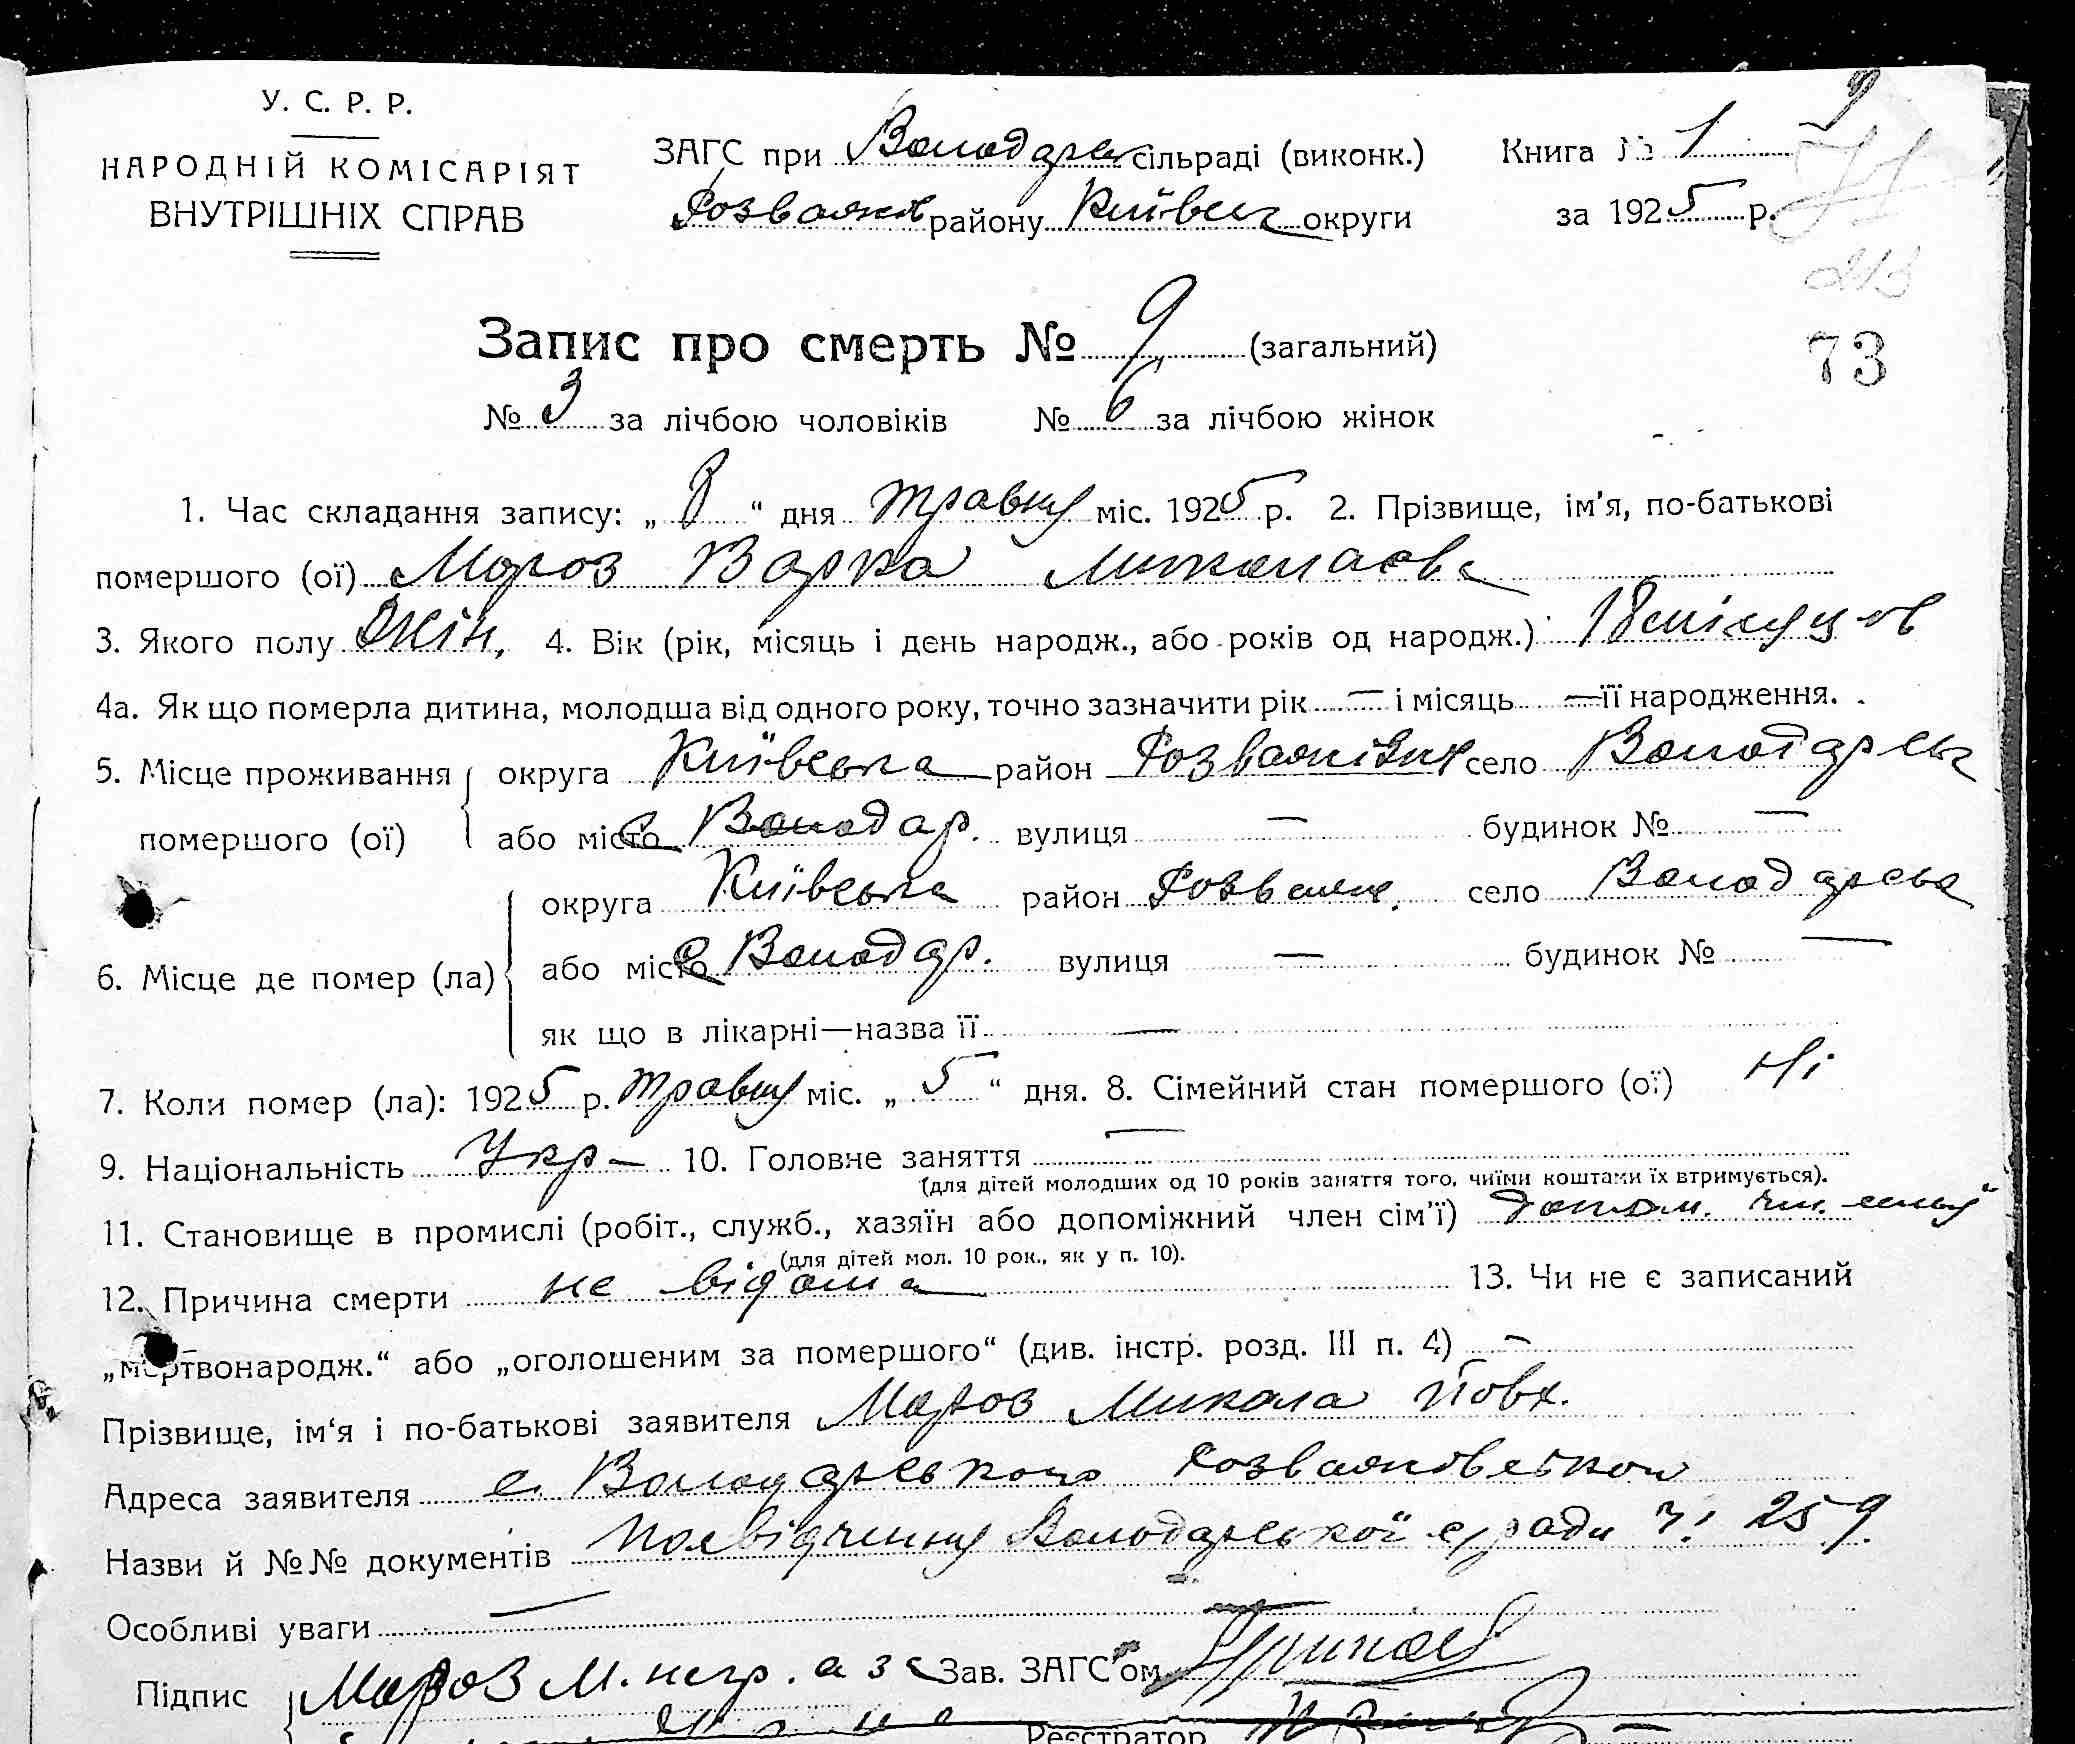 У. С. Р. Р.
НАРОДНІЙ КОМІСАРІЯТ
ВНУТРІШНІХ СПРАВ
ЗАГС при Володарск сільраді (виконк.)
Розважев району Київськ округи
Книга № 1
за 1925 р.
9
71
213
73
Запис про смерть № 9 (загальний)
№ 3 за лічбою чоловіків № 6 за лічбою жінок
1. Час складання запису: „ 8 “ дня травня міс. 1925 р. 2. Прізвище, ім'я, по-батькові
помершого (ої) Мороз Варка Миколаєва
3. Якого полу жін. 4. Вік (рік, місяць і день народж., або років од народж.) 18 місяцов
4а. Як що померла дитина, молодша від одного року, точно зазначити рік — і місяць — її народження.
5. Місце проживання помершого (ої)
округа Київська район село Володарськ
або місто с Володар. вулиця — будинок № —
6. Місце де помер (ла)
округа Київська район Розваж. село Володарська
або місто с Володар. вулиця — будинок № —
як що в лікарні—назва її —
7. Коли помер (ла): 1925 р. травня міс. „ 5 “ дня. 8. Сімейний стан помершого (ої) Ні
9. Національність Укр— 10. Головне заняття —
(для дітей молодших од 10 років заняття того, чиїми коштами їх втримується).
11. Становище в промислі (робіт., служб., хазяїн або допоміжний член сім'ї) допом. чл. семьї
(для дітей мол. 10 рок., як у п. 10).
12. Причина смерти не відома 13. Чи не є записаний
„мертвонародж.“ або „оголошеним за помершого“ (див. інстр. розд. III п. 4) —
Прізвище, ім'я і по-батькові заявителя Мороз Микола Йовх.
Адреса заявителя с. Володарського
Назви й №№ документів Посвідчення Володарської с/ради ч. 259.
Особливі уваги —
Підпис Мороз М. негр. а за Зав. ЗАГС'ом
Реєстратор